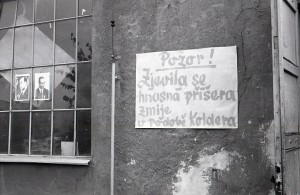 Pozor!
Zjevila se
hnusná příšera
zmije
v podobě Koldera